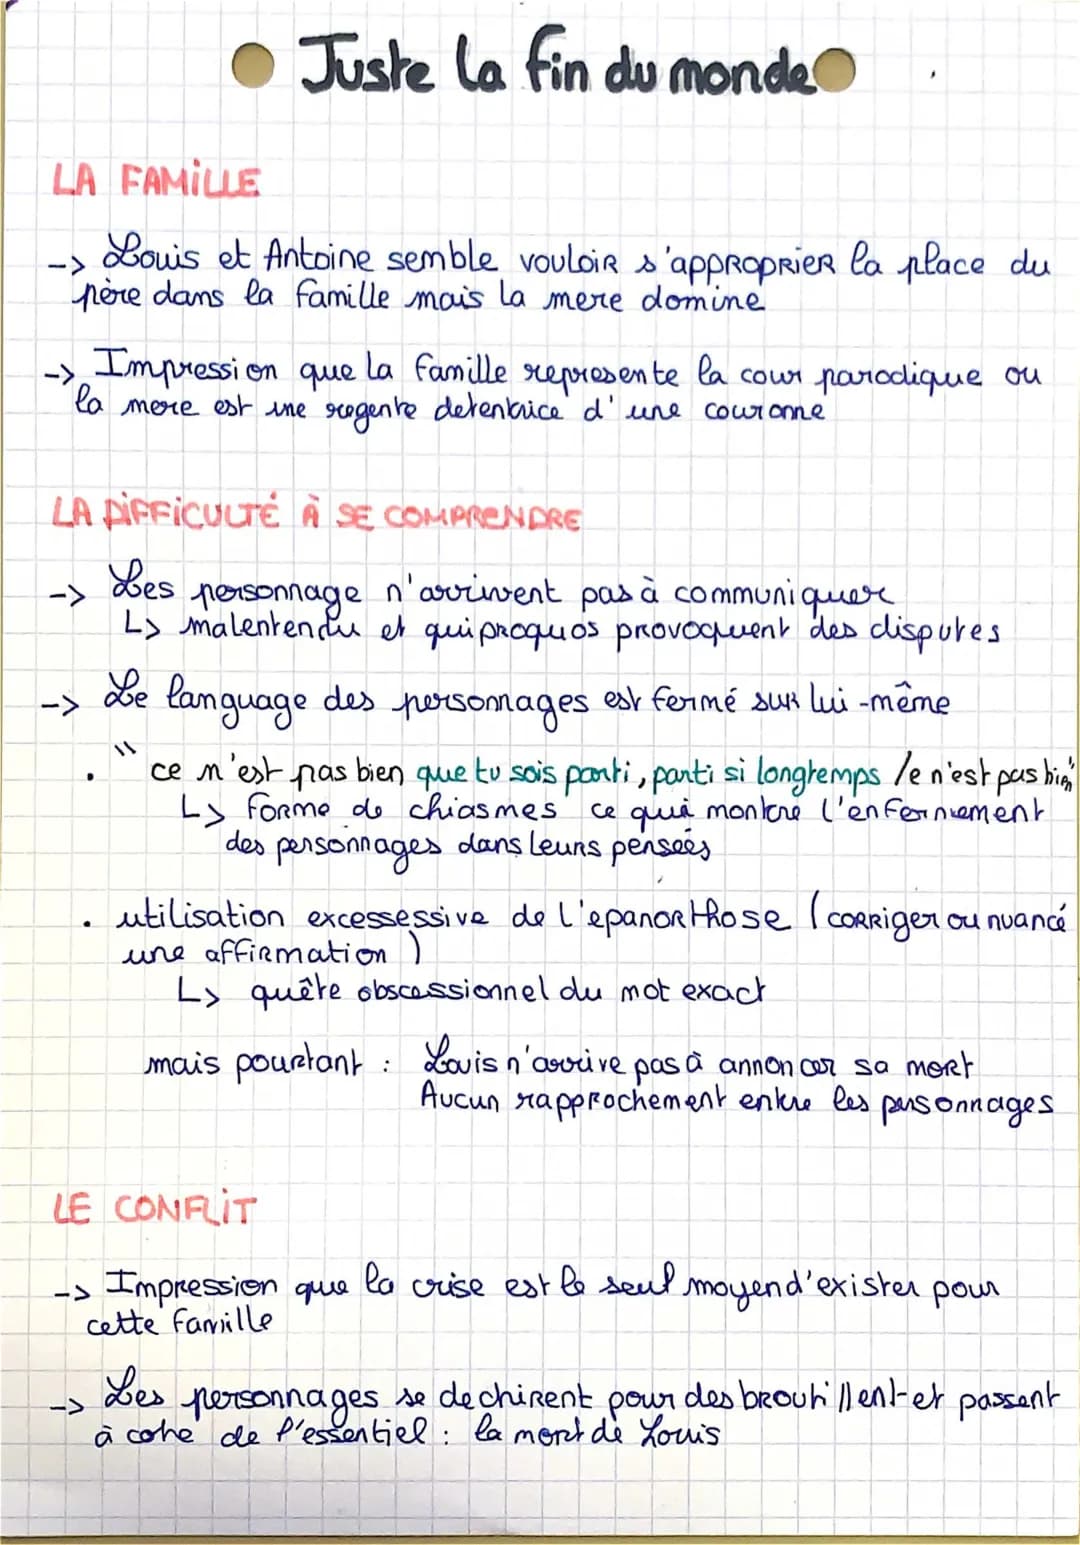 Juste la fin du monde
LA FAMILLE
-> Louis et Antoine semble vouloir s'approprier la place du
père dans la famille mais la mere domine
-> Impression que la famille represente la cour parodique ou
la mere est une regente detentrice d'une couronne
LA DIFFICULTÉ À SE COMPRENDRE
-> Les personnage n'arrivent pas à communiquer
L> malentendu et quiproquos provoquent des disputes
-> Le language des personnages est fermé sur lui-même
. "ce n'est pas bien que tu sois parti, parti si longtemps /e n'est pas bien"
L> forme de chiasmes ce qui montre l'enfermement
des personnages dans leurs pensées
. utilisation excessessive de l'epanorthose (corriger ou nuancé
une affirmation)
L> quête obscessionnel du mot exact
mais pourtant : Louis n'arrive pas à annoncer sa mort
Aucun rapprochement entre les personnages
LE CONFLIT
-> Impression que la crise est le seul moyen d'exister pour
cette famille
-> Les personnages se dechirent pour des broutillent et passent
à cote de l'essentiel : la mort de Louis